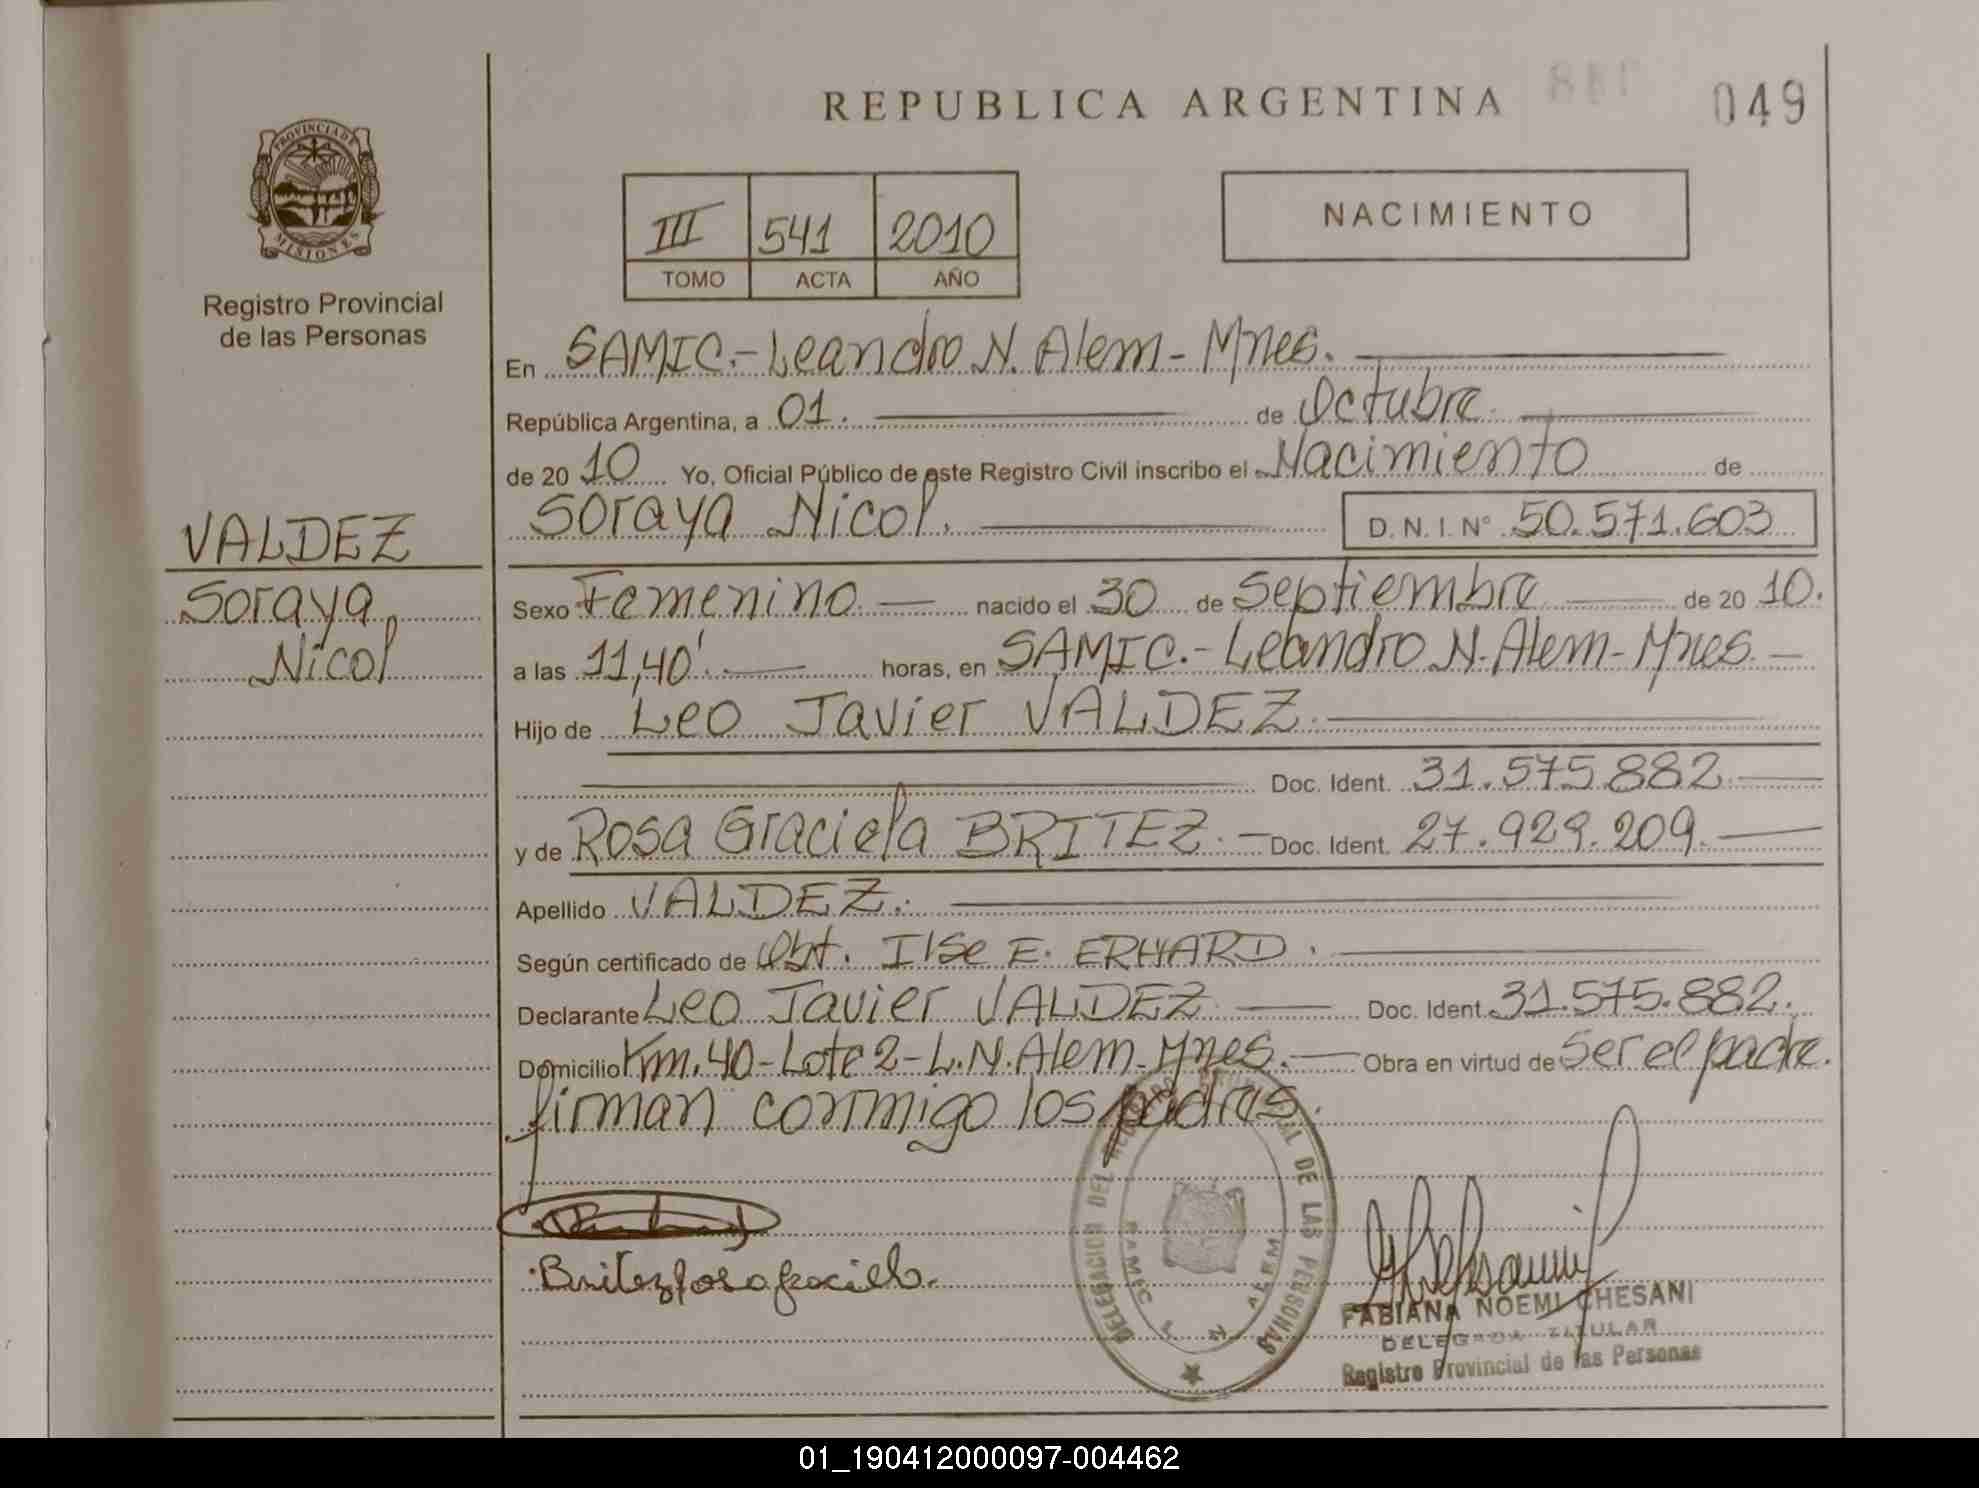 REPUBLICA ARGENTINA
049
PROVINCIA DE
MISIONES
Registro Provincial
de las Personas
III 541 2010
TOMO ACTA AÑO
NACIMIENTO
En SAMIC.- Leandro N. Alem - Mnes.
República Argentina, a 01. de Octubre
de 20 10 Yo, Oficial Público de este Registro Civil inscribo el Nacimiento de
Soraya Nicol. D. N. I. N° 50.571.603
VALDEZ
Soraya
Nicol
Sexo Femenino nacido el 30 de Septiembre de 20 10.
a las 11,40'. horas, en SAMIC.- Leandro N. Alem - Mnes.
Hijo de Leo Javier VALDEZ.
Doc. Ident. 31.575.882
y de Rosa Graciela BRITEZ. Doc. Ident. 27.929.209
Apellido VALDEZ.
Según certificado de Obt. Ilse E. ERHARD.
Declarante Leo Javier VALDEZ Doc. Ident. 31.575.882.
Domicilio Km. 40 - Lote 2 - L.N. Alem - Mnes. Obra en virtud de Ser el padre.
firman conmigo los padres.
DELEGACION DEL REGISTRO PROVINCIAL DE LAS PERSONAS
SAMIC L N ALEM
Britez rosa graciela.
FABIANA NOEMI CHESANI
DELEGADA TITULAR
Registro Provincial de las Personas
01_190412000097-004462